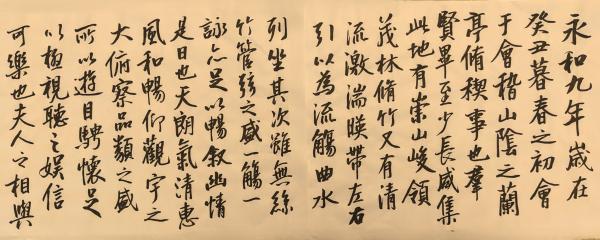 永和九年歲在
癸丑暮春之初會
于會稽山陰之蘭
亭脩稧事也羣
賢畢至少長咸集
此地有崇山峻領
茂林脩竹又有清
流激湍暎帶左右
引以為流觴曲水
列坐其次雖無絲
竹管弦之盛一觴一
詠亦足以暢叙幽情
是日也天朗氣清惠
風和暢仰觀宇之
大俯察品類之盛
所以遊目騁懷足
以極視聽之娱信
可樂也夫人之相與